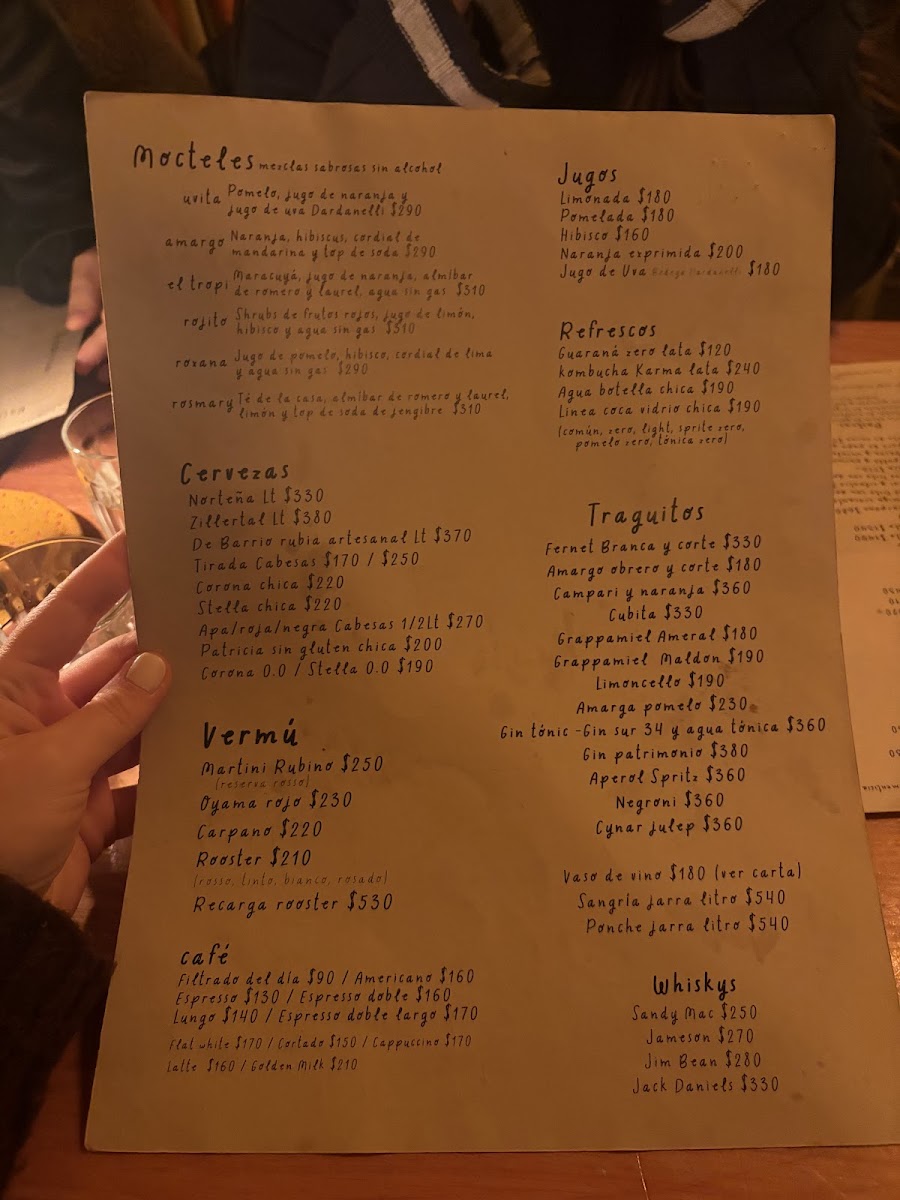 Mocteles mezclas sabrosas sin alcohol
uvita Pomelo, jugo de naranja y
jugo de uva Dardanelli $290
amargo Naranja, hibiscus, cordial de
mandarina y top de soda $290
el tropi Maracuyá, jugo de naranja, almíbar
de romero y laurel, agua sin gas $310
rojito Shrubs de frutos rojos, jugo de limón,
hibisco y agua sin gas $310
roxana Jugo de pomelo, hibisco, cordial de lima
y agua sin gas $290
rosmary Té de la casa, almíbar de romero y laurel,
limón y top de soda de jengibre $310
Cervezas
Norteña Lt $330
Zillertal Lt $380
De Barrio rubia artesanal Lt $370
Tirada Cabesas $170 / $250
Corona chica $220
Stella chica $220
Apa/roja/negra Cabesas 1/2Lt $270
Patricia sin gluten chica $200
Corona 0.0 / Stella 0.0 $190
Vermú
Martini Rubino $250
(reserva rosso)
Oyama rojo $230
Carpano $220
Rooster $210
(rosso, tinto, bianco, rosado)
Recarga rooster $530
café
Filtrado del día $90 / Americano $160
Espresso $130 / Espresso doble $160
Lungo $140 / Espresso doble largo $170
Flat white $170 / Cortado $150 / Cappuccino $170
Latte $160 / Golden Milk $210
Jugos
Limonada $180
Pomelada $180
Hibisco $160
Naranja exprimida $200
Jugo de Uva Bodega Dardanelli $180
Refrescos
Guaraná zero lata $120
Kombucha Karma lata $240
Agua botella chica $190
Linea coca vidrio chica $190
(común, zero, light, sprite zero,
pomelo zero, tónica zero)
Traguitos
Fernet Branca y corte $330
Amargo obrero y corte $180
Campari y naranja $360
Cubita $330
Grappamiel Ameral $180
Grappamiel Maldon $190
Limoncello $190
Amarga pomelo $230
Gin tónic -Gin sur 34 y agua tónica $360
Gin patrimonio $380
Aperol Spritz $360
Negroni $360
Cynar julep $360
Vaso de vino $180 (ver carta)
Sangría jarra litro $540
Ponche jarra litro $540
Whiskys
Sandy Mac $250
Jameson $270
Jim Bean $280
Jack Daniels $330